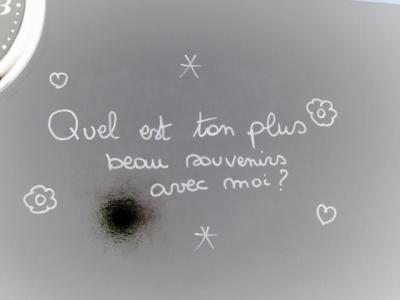 Quel est ton plus
beau souvenirs
avec moi ?